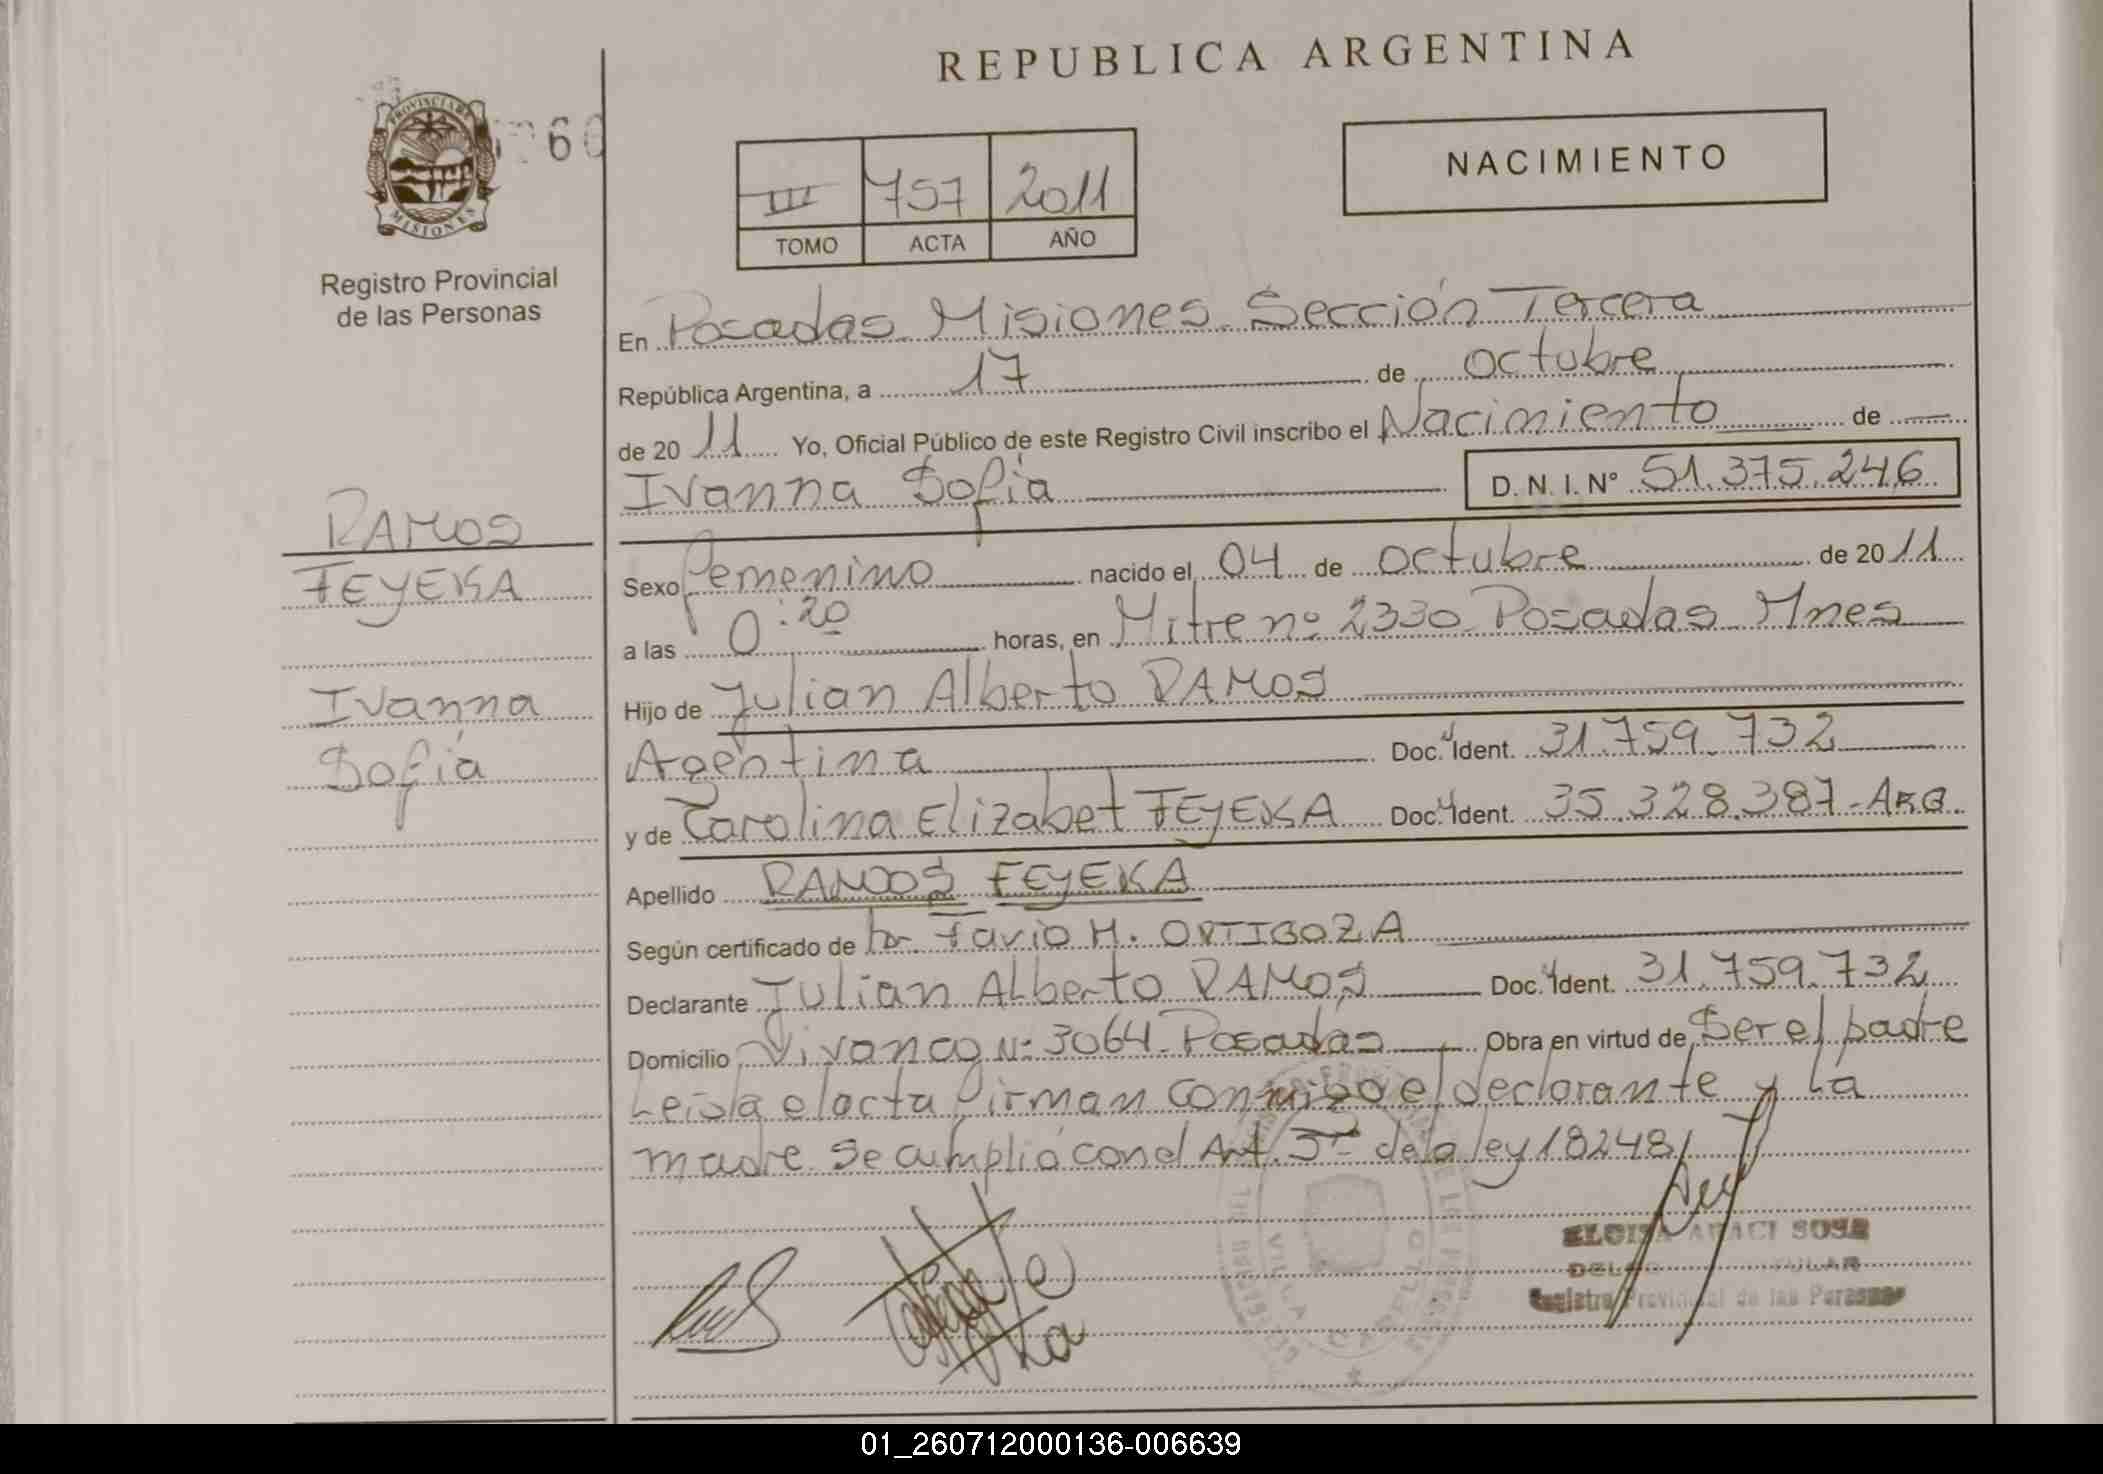 REPUBLICA ARGENTINA
PROVINCIA DE
MISIONES
60
Registro Provincial
de las Personas
III 757 2011
TOMO ACTA AÑO
NACIMIENTO
En Posadas Misiones Sección Tercera
República Argentina, a 17 de octubre
de 20 11 Yo, Oficial Público de este Registro Civil inscribo el Nacimiento de
Ivanna Sofia D. N. I. N° 51.375.246
RAMOS
FEYEKA
Ivanna
Sofía
Sexo femenino nacido el 04 de octubre de 20 11
a las 0:20 horas, en Mitre n° 2330 Posadas Mnes
Hijo de Julian Alberto RAMOS
Agentina Doc. Ident. 31.759.732
y de Carolina Elizabet FEYEKA Doc. Ident. 35.328.387-ARG.
Apellido RAMOS FEYEKA
Según certificado de Dr. Favio H. ORTIGOZA
Declarante Julian Alberto RAMOS Doc. Ident. 31.759.732
Domicilio Vivanco N° 3064 Posadas Obra en virtud de Ser el padre
Leída el acta firman conmigo el declarante y la
madre Se cumplió con el Art. 5to de la ley 18248
VILLA CABELLO
Registro Provincial de las Personas
01_260712000136-006639